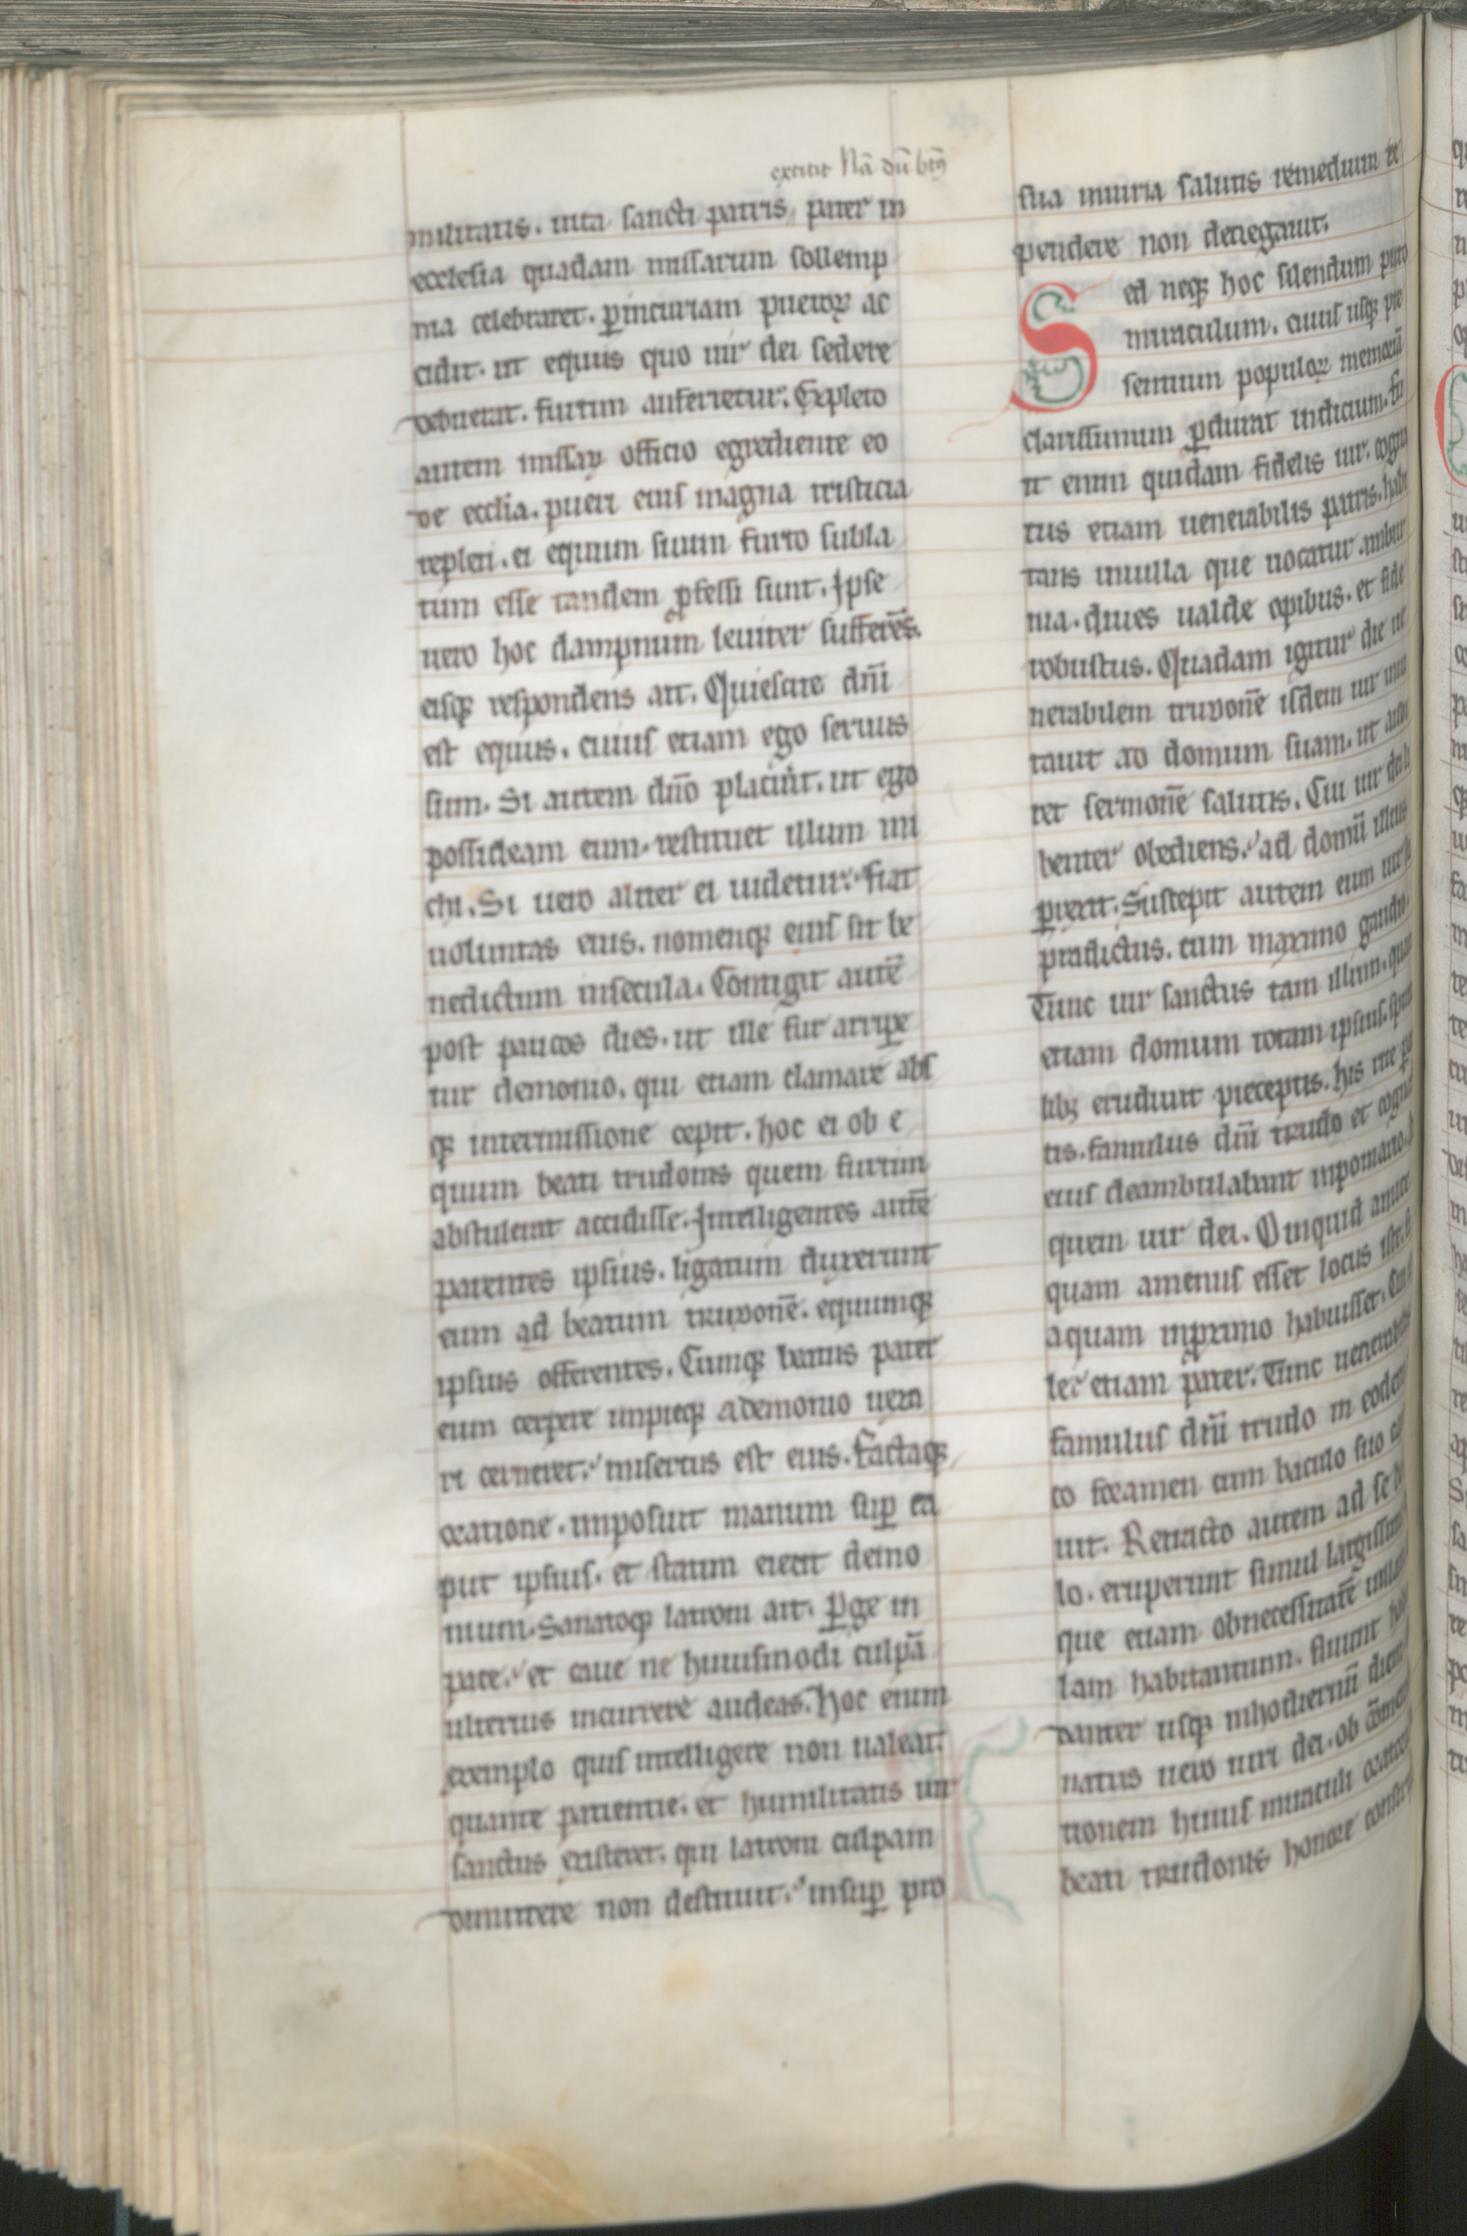 extitit Nā dū btꝰ
militatis. uita sancti patris pater in
ecclesia quadam missarum sollemp
nia celebraret. ꝑincuriam pueroꝝ ac
cidit. ut equus quo uir dei sedere
debuerat. furtim auferretur. Expleto
autem missaꝝ officio egrediente eo
de ecclia. pueri eius magna tristicia
repleti. ei equum suum furto subla
tum esse tandem ꝓfessi sunt. Ipse
uero hoc dampnum leuiter sufferēs.
eisqꝫ respondens ait. Quiescite dn̄i
est equus. cuius etiam ego seruus
sum. Si autem dn̄o placuit. ut ego
possideam eum. restituet illum mi
chi. Si uero aliter ei uidetur. fiat
uoluntas eius. nomenqꝫ eius sit be
nedictum insecula. Contigit autē
post paucos dies. ut ille fur arripe
tur demonio. qui etiam clamare abs
qꝫ intermissione cepit. hoc ei ob e
quum beati trudonis quem furtim
abstulerat accidisse. Intelligentes autē
parentes ipsius. ligatum duxerunt
eum ad beatum trudonē. equumqꝫ
ipsius offerentes. Cumqꝫ beatus pater
eum cerpere impieqꝫ ademonio uexa
ri cerneret. misertus est eius. factaqꝫ
oratione. imposuit manum suꝑ ca
put ipsius. et statim eiecit demo
nium. Sanatoqꝫ latroni ait. ꝑge in
pace. et caue ne huiusmodi culpā
ulterius incurrere audeas. hoc enim
exemplo quis intelligere non ualeat.
quante patientie. et humilitatis uir
sanctus existeret. qui latroni culpam
dimittere non destitit. insuꝑ pro
sua iniuria salutis remedium re
pendere non denegauit.
Sed neqꝫ hoc silendum puto
miraculum. cuius usqꝫ pre
sentium populoꝝ memoriā
clarissimum ꝑdurat indicium. Fu
it enim quidam fidelis uir. cogna
tus etiam uenerabilis patris. habi
tans inuilla que uocatur
nia. diues ualde opibus. et fide
robustus. Quadam igitur die ue
nerabilem trudonē isdem uir inui
tauit ad domum suam. ut audi
ret sermonē salutis. Cui uir dei li
benter obediens. ad domū illius
ꝑrexit. Suscepit autem eum uir
predictus. cum maximo gaudio.
Tunc uir sanctus tam illum. quam
etiam domum totam ipsius.
libꝫ erudiuit preceptis. his rite
tis. famulus dn̄i trudo et
eius deambulabant inpomario.
quem uir dei. O inquid amice
quam amenus esset locus iste. si
aquam inꝓximo habuisset.
let etiam pater. Tunc uenerabilis
famulus dn̄i trudo in eodem
co foramen cum baculo suo
uit. Retracto autem ad se
lo. eruperunt simul largissimi
que etiam obnecessitatē
lam habitantium. fluunt
danter usqꝫ inhodiernū diem
natus uero uiri dei. ob
tionem huius miraculi
beati trudonis honore